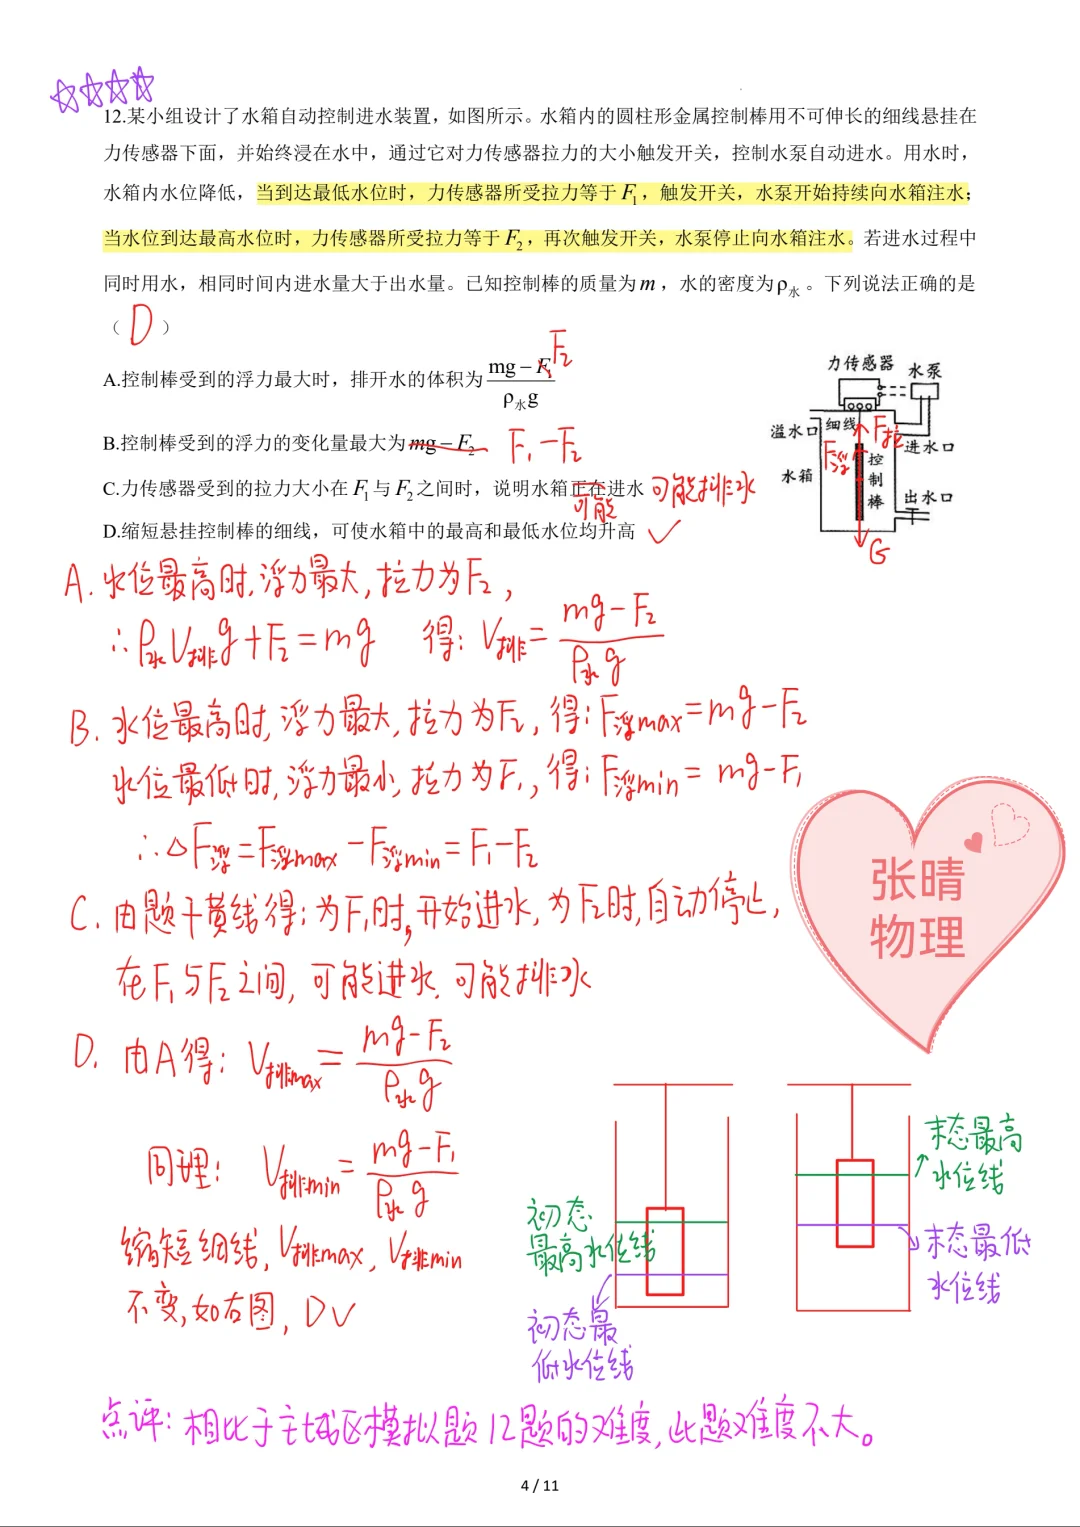 12.某小组设计了水箱自动控制进水装置，如图所示。水箱内的圆柱形金属控制棒用不可伸长的细线悬挂在
力传感器下面，并始终浸在水中，通过它对力传感器拉力的大小触发开关，控制水泵自动进水。用水时，
水箱内水位降低，当到达最低水位时，力传感器所受拉力等于F₁，触发开关，水泵开始持续向水箱注水；
当水位到达最高水位时，力传感器所受拉力等于F₂，再次触发开关，水泵停止向水箱注水。若进水过程中
同时用水，相同时间内进水量大于出水量。已知控制棒的质量为m，水的密度为ρ水。下列说法正确的是
（ D ）
A.控制棒受到的浮力最大时，排开水的体积为 (mg－F₁)/(ρ水g) F₂
B.控制棒受到的浮力的变化量最大为mg－F₂ F₁－F₂
C.力传感器受到的拉力大小在F₁与F₂之间时，说明水箱正在进水 可能 可能排水
D.缩短悬挂控制棒的细线，可使水箱中的最高和最低水位均升高 ✓
力传感器
水泵
溢水口
细线
F拉
进水口
F浮
水箱
控制棒
出水口
G
A.水位最高时,浮力最大,拉力为F₂,
∴ρ水V排g+F₂=mg 得:V排=(mg-F₂)/(ρ水g)
B.水位最高时,浮力最大,拉力为F₂,得:F浮max=mg-F₂
水位最低时,浮力最小,拉力为F₁,得:F浮min=mg-F₁
∴△F浮=F浮max-F浮min=F₁-F₂
C.由题干黄线得:为F₁时,开始进水,为F₂时,自动停止,
在F₁与F₂之间,可能进水,可能排水
D.由A得:V排max=(mg-F₂)/(ρ水g)
同理:V排min=(mg-F₁)/(ρ水g)
缩短细线,V排max,V排min
不变,如右图,D✓
张晴
物理
初态
最高水位线
初态最
低水位线
末态最高
水位线
末态最低
水位线
点评:相比于主城区模拟题12题的难度,此题难度不大。
4 / 11